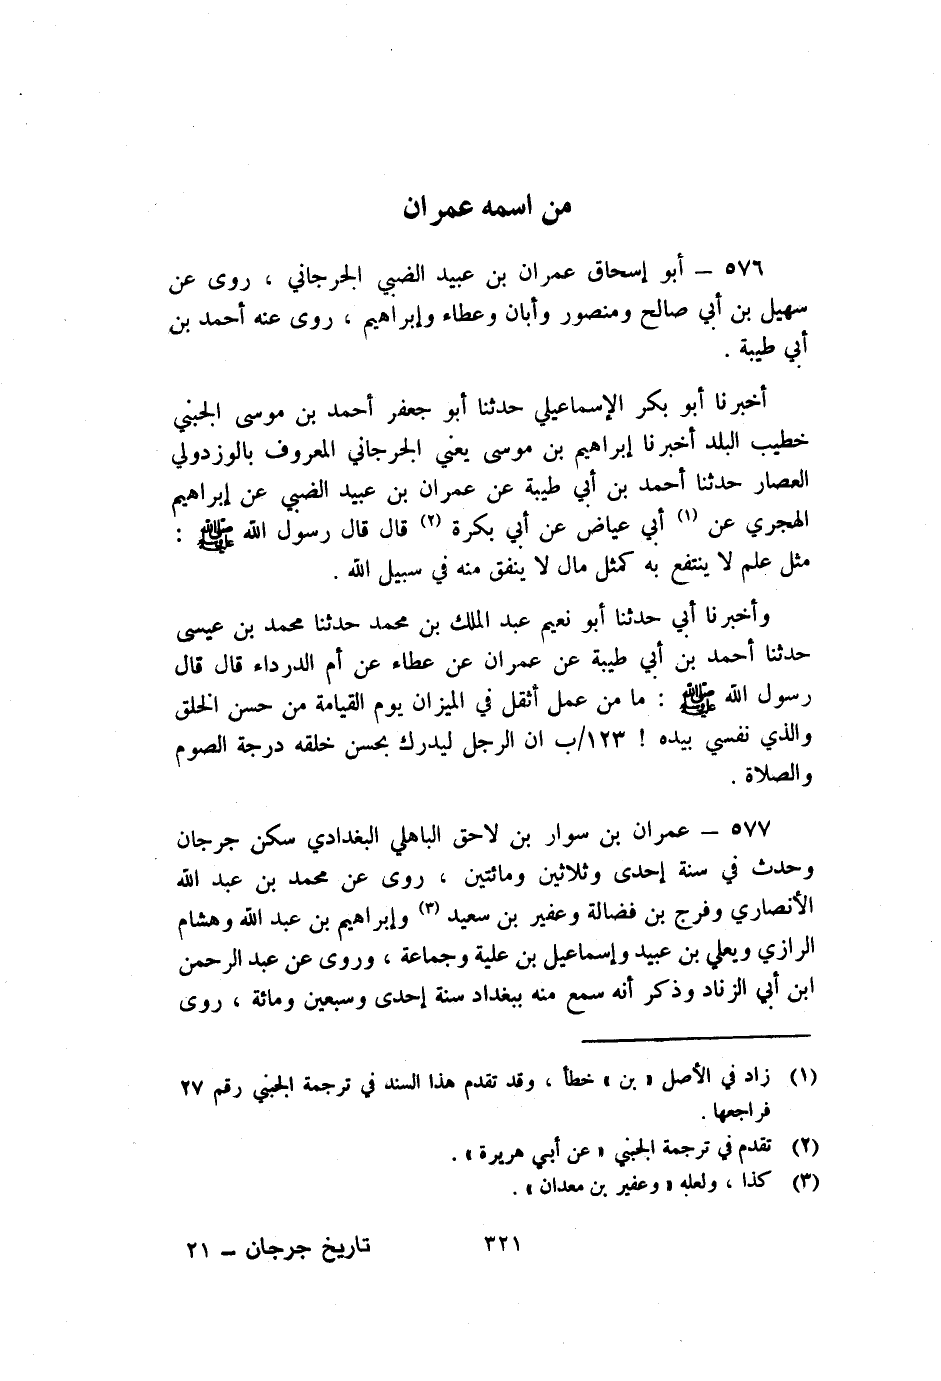 من اسمه عمران
٥٧٦ ــ أبو إسحاق عمران بن عبيد الضبي الجرجاني ، روى عن
سهيل بن أبي صالح ومنصور وأبان وعطاء وإبراهيم ، روى عنه أحمد بن
أبي طيبة .
أخبرنا أبو بكر الإسماعيلي حدثنا أبو جعفر أحمد بن موسى الجبني
خطيب البلد أخبرنا إبراهيم بن موسى يعني الجرجاني المعروف بالوزدولي
العصار حدثنا أحمد بن أبي طيبة عن عمران بن عبيد الضبي عن إبراهيم
الهجري عن (١) أبي عياض عن أبي بكرة (٢) قال قال رسول الله ﷺ :
مثل علم لا ينتفع به كمثل مال لا ينفق منه في سبيل الله .
وأخبرنا أبي حدثنا أبو نعيم عبد الملك بن محمد حدثنا محمد بن عيسى
حدثنا أحمد بن أبي طيبة عن عمران عن عطاء عن أم الدرداء قال قال
رسول الله ﷺ : ما من عمل أثقل في الميزان يوم القيامة من حسن الخلق
والذي نفسي بيده ! ١٢٣/ب ان الرجل ليدرك بحسن خلقه درجة الصوم
والصلاة .
٥٧٧ ــ عمران بن سوار بن لاحق الباهلي البغدادي سكن جرجان
وحدث في سنة إحدى وثلاثين ومائتين ، روى عن محمد بن عبد الله
الأنصاري وفرج بن فضالة وعفير بن سعيد (٣) وإبراهيم بن عبد الله وهشام
الرازي ويعلي بن عبيد وإسماعيل بن علية وجماعة ، وروى عن عبد الرحمن
ابن أبي الزناد وذكر أنه سمع منه ببغداد سنة إحدى وسبعين ومائة ، روى
(١) زاد في الأصل « بن » خطأ ، وقد تقدم هذا السند في ترجمة الجبني رقم ٢٧
فراجعها .
(٢) تقدم في ترجمة الجبني « عن أبي هريرة » .
(٣) كذا ، ولعله « وعفير بن معدان » .
٣٢١ تاريخ جرجان ــ ٢١